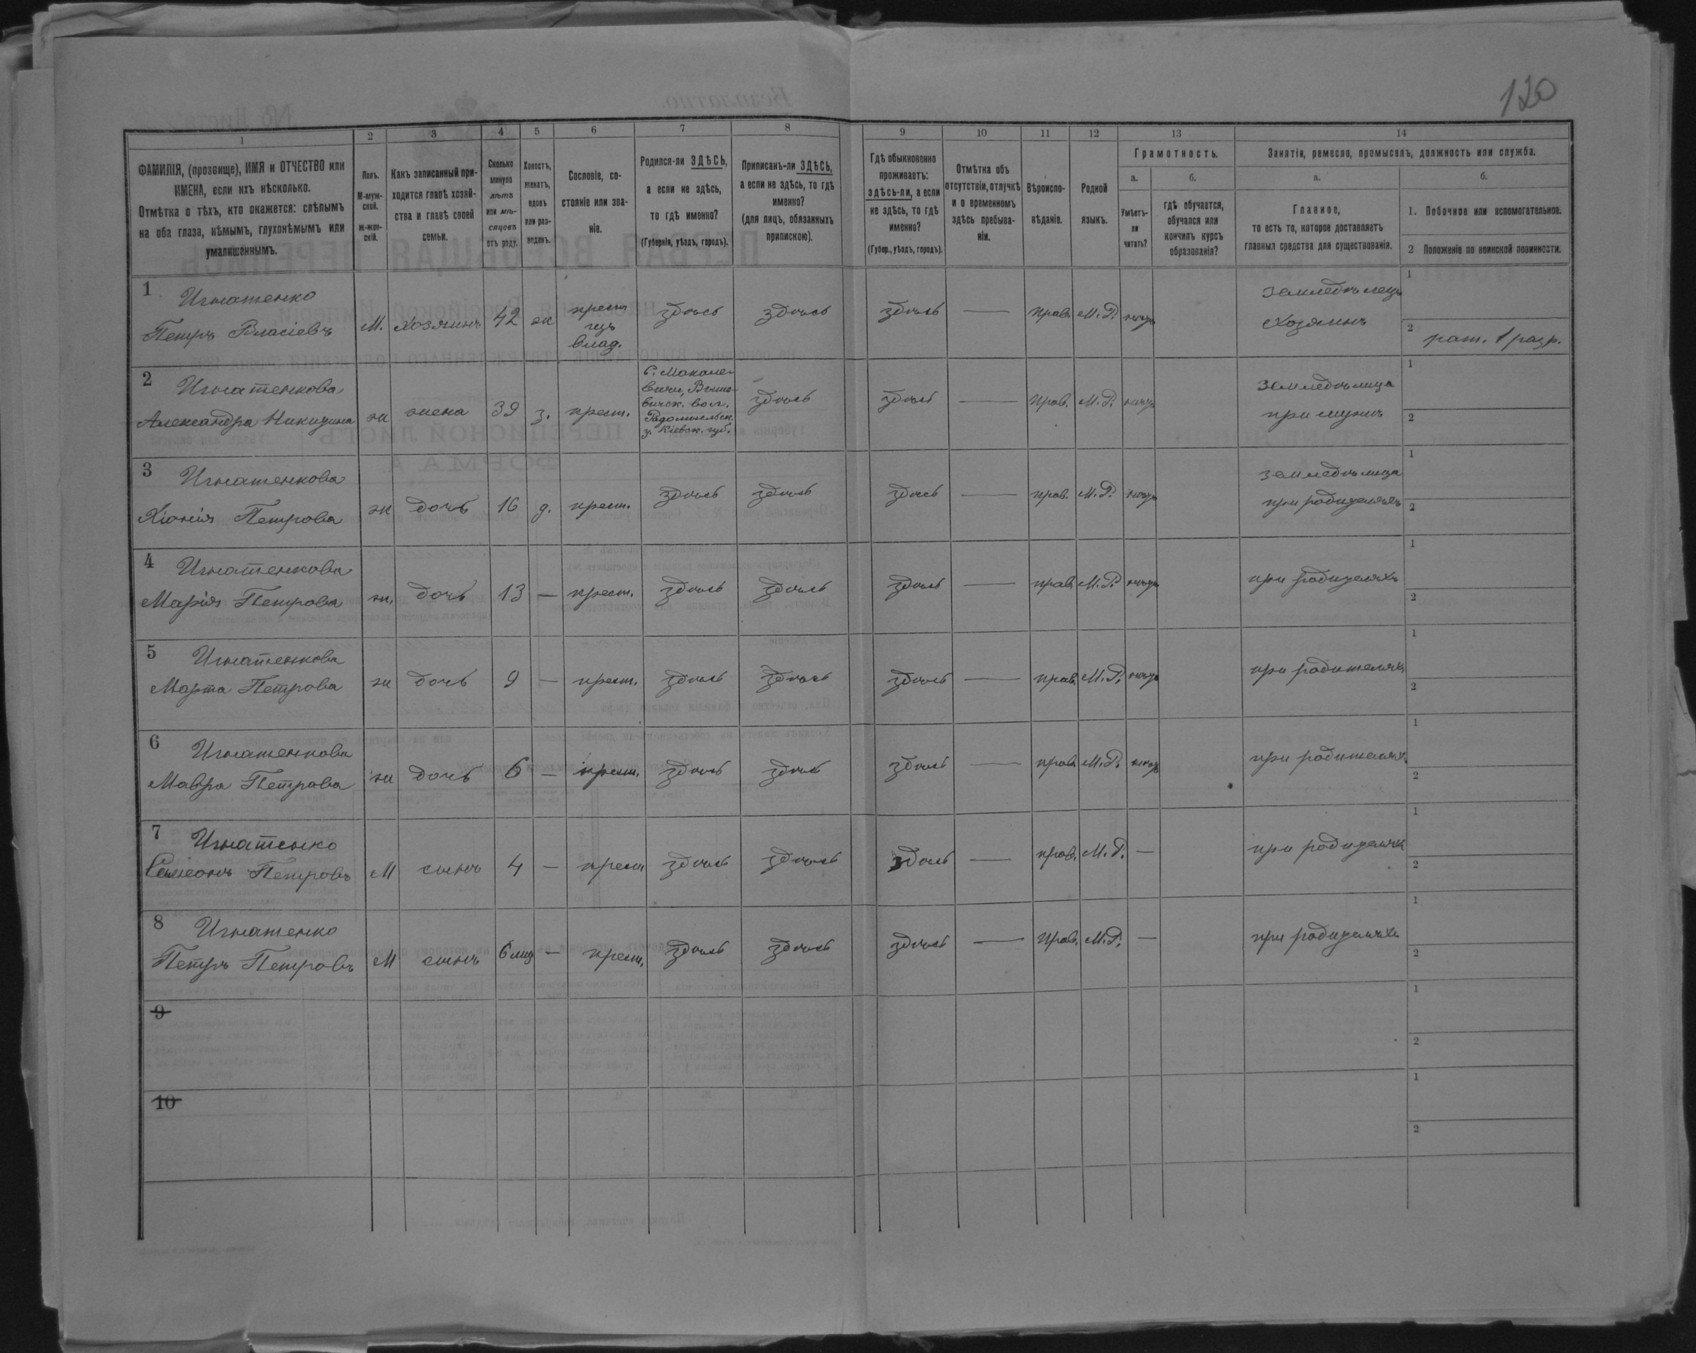 120
1
2
3
4
5
6
7
8
9
10
11
12
13
14
ФАМИЛІЯ, (прозвище), ИМЯ и ОТЧЕСТВО или
ИМЕНА, если ихъ нѣсколько.
Отмѣтка о тѣхъ, кто окажется: слѣпымъ
на оба глаза, нѣмымъ, глухонѣмымъ или
умалишеннымъ.
Полъ.
М-муж-
ской.
ж-жен-
скій.
Какъ записанный при-
ходится главѣ хозяй-
ства и главѣ своей
семьи.
Сколько
минуло
лѣтъ
или мѣ-
сяцевъ
отъ роду.
Холостъ,
женатъ,
вдовъ
или раз-
веденъ.
Сословіе, со-
стояніе или зва-
ніе.
Родился-ли ЗДѢСЬ,
а если не здѣсь,
то гдѣ именно?
(Губернія, уѣздъ, городъ).
Приписанъ-ли ЗДѢСЬ,
а если не здѣсь, то гдѣ
именно?
(для лицъ, обязанныхъ
припискою).
Гдѣ обыкновенно
проживаетъ:
здѣсь-ли, а если
не здѣсь, то гдѣ
именно?
(Губер., уѣздъ, городъ).
Отмѣтка объ
отсутствіи, отлучкѣ
и о временномъ
здѣсь пребыва-
ніи.
Вѣроиспо-
вѣданіе.
Родной
языкъ.
Грамотность.
а.
Умѣетъ-
ли
читать?
б.
гдѣ обучается,
обучался или
кончилъ курсъ
образованія?
Занятіе, ремесло, промыселъ, должность или служба.
а.
Главное,
то есть то, которое доставляетъ
главныя средства для существованія.
б.
1. Побочное или вспомогательное.
2 Положеніе по воинской повинности.
1 Игнатенко
Петръ Власіевъ М. хозяинъ 42 ж крест. влад. здѣсь здѣсь здѣсь — прав. М.Р. нѣтъ земледѣлецъ
хозяинъ
1
2 рат. 1 разр.
2 Игнатенкова
Александра Никитина ж жена 39 з. крест.
Кіевск. губ.
здѣсь здѣсь — прав. М.Р. нѣтъ земледѣлица
при мужѣ
1
2
3 Игнатенкова
Хіонія Петрова ж дочь 16 д. крест. здѣсь здѣсь здѣсь — прав. М.Р. нѣтъ земледѣлица
при родителяхъ
1
2
4 Игнатенкова
Марія Петрова ж. дочь 13 — крест. здѣсь здѣсь здѣсь — прав. М.Р. нѣтъ при родителяхъ
1
2
5 Игнатенкова
Марта Петрова ж дочь 9 — крест. здѣсь здѣсь здѣсь — прав. М.Р. нѣтъ при родителяхъ
1
2
6 Игнатенкова
Мавра Петрова ж дочь 6 — крест. здѣсь здѣсь здѣсь — прав. М.Р. нѣтъ при родителяхъ
1
2
7 Игнатенко
Симеонъ Петровъ М сынъ 4 — крест. здѣсь здѣсь здѣсь — прав. М.Р. — при родителяхъ
1
2
8 Игнатенко
Петръ Петровъ М сынъ 6 мѣс — крест. здѣсь здѣсь здѣсь — прав. М.Р. — при родителяхъ
1
2
9
1
2
10
1
2